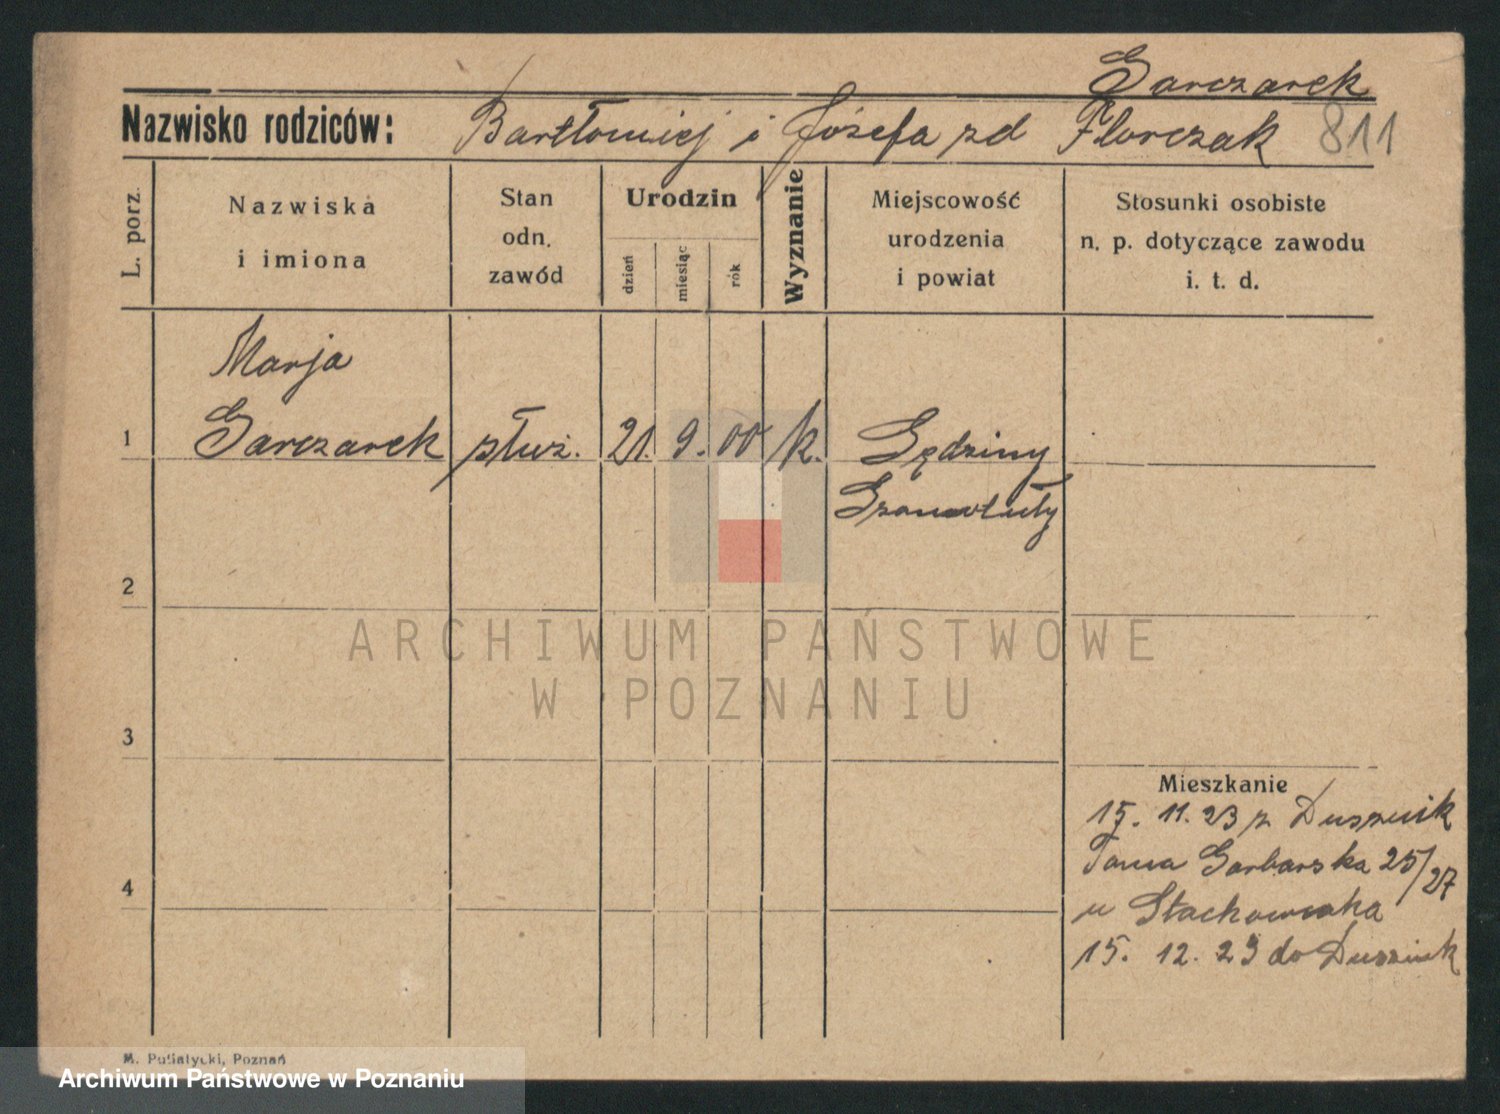 Garczarek
Nazwisko rodziców: Bartłomiej i Józefa zd Florczak 811
L. porz.
Nazwiska
i imiona
Stan
odn.
zawód
Urodzin
dzień
miesiąc
rok
Wyznanie
Miejscowość
urodzenia
i powiat
Stosunki osobiste
n. p. dotyczące zawodu
i. t. d.
Marja
1 Garczarek służ. 21. 9. 00 k.
Szamotuły
2
ARCHIWUM PAŃSTWOWE
W POZNANIU
3
Mieszkanie
15. 11. 23 z Dusznik
Garbarska 25/27
u Stachowiaka
4
15. 12. 23 do Dusznik
M. Putiatycki, Poznań
Archiwum Państwowe w Poznaniu